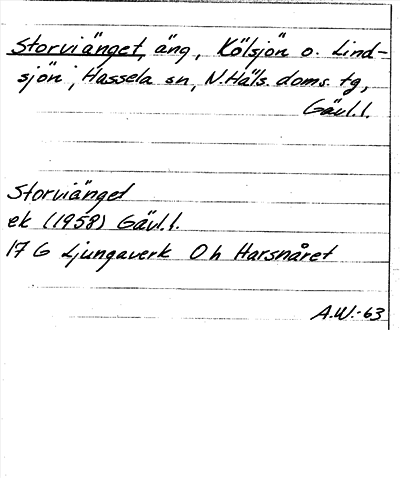 Storviänget, äng, Kölsjön o. Lind-
sjön, Hassela sn, N.Häls. doms. tg,
Gävl.l.
Storviänget
ek (1958) Gävl.l.
17 G Ljungaverk 0 h Harsnåret
A.W.-63